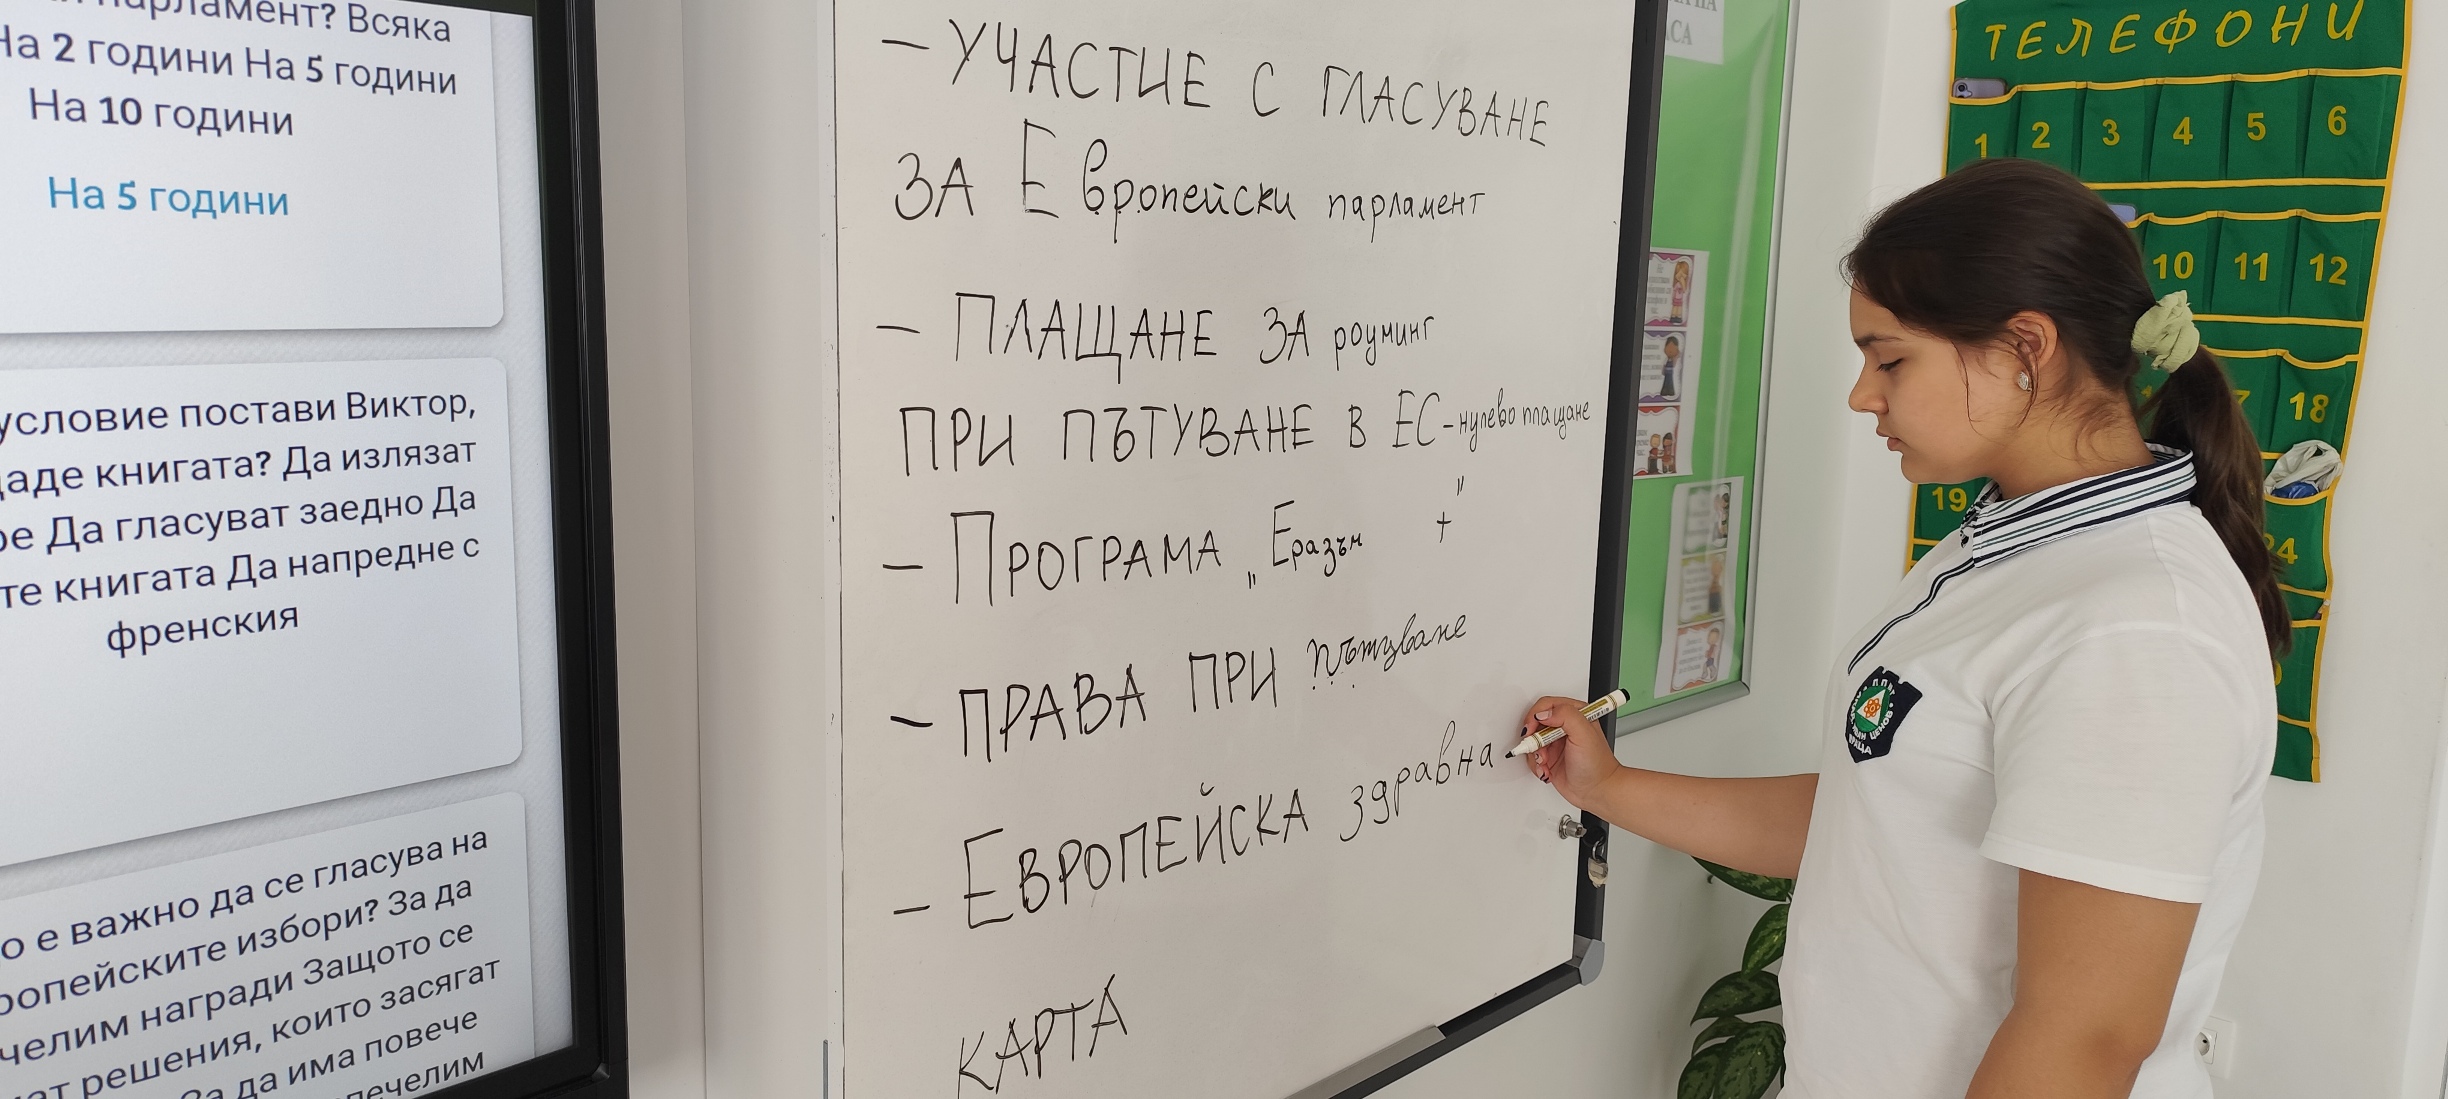 парламент? Всяка
На 2 години На 5 години
На 10 години
На 5 години
условие постави Виктор,
книгата? Да излязат
Да гласуват заедно Да
книгата Да напредне с
френския
е важно да се гласува на
избори? За да
награди Защото се
решения, които засягат
да има повече
- УЧАСТИЕ С ГЛАСУВАНЕ
ЗА Европейски парламент
- ПЛАЩАНЕ ЗА роуминг
ПРИ ПЪТУВАНЕ В ЕС - нулево плащане
- ПРОГРАМА „Еразъм +"
- ПРАВА ПРИ пътуване
- ЕВРОПЕЙСКА здравна
КАРТА
ТЕЛЕФОНИ
1 2 3 4 5 6
10 11 12
18
19
24
ВРАЦА